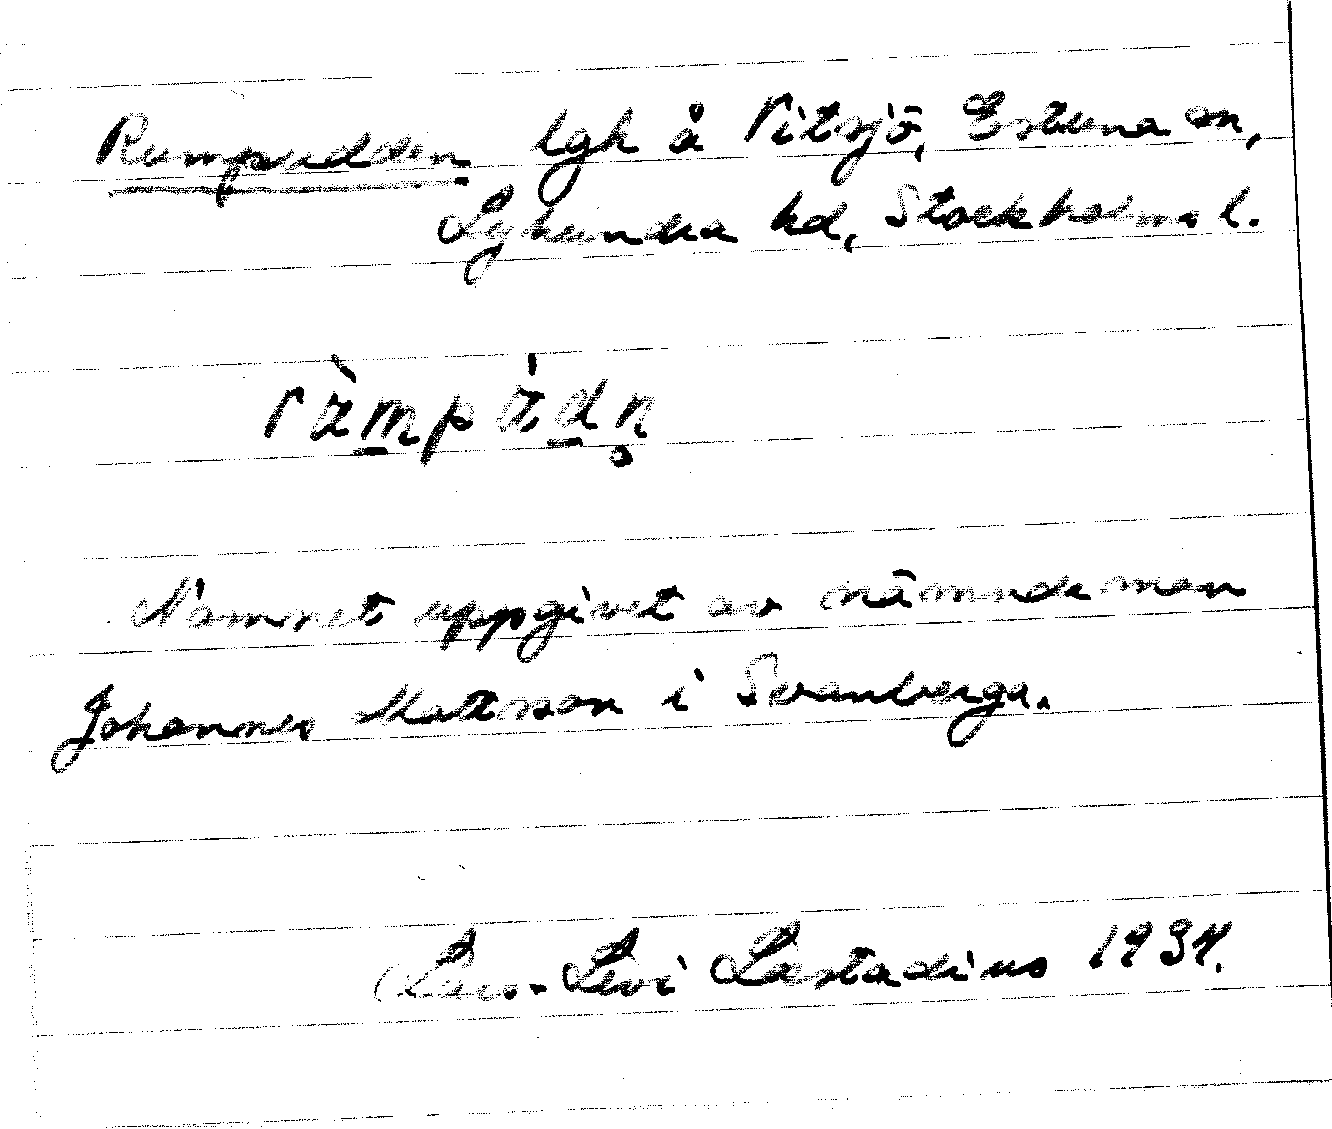 Rumpudden lgh å Vitsjö, Estuna sn,
Lyhundra hd, Stockholms l.
Namnet uppgivet av nämndeman
Johannes Mattsson i Svanberga.
Lars-Levi Læstadius 1934.